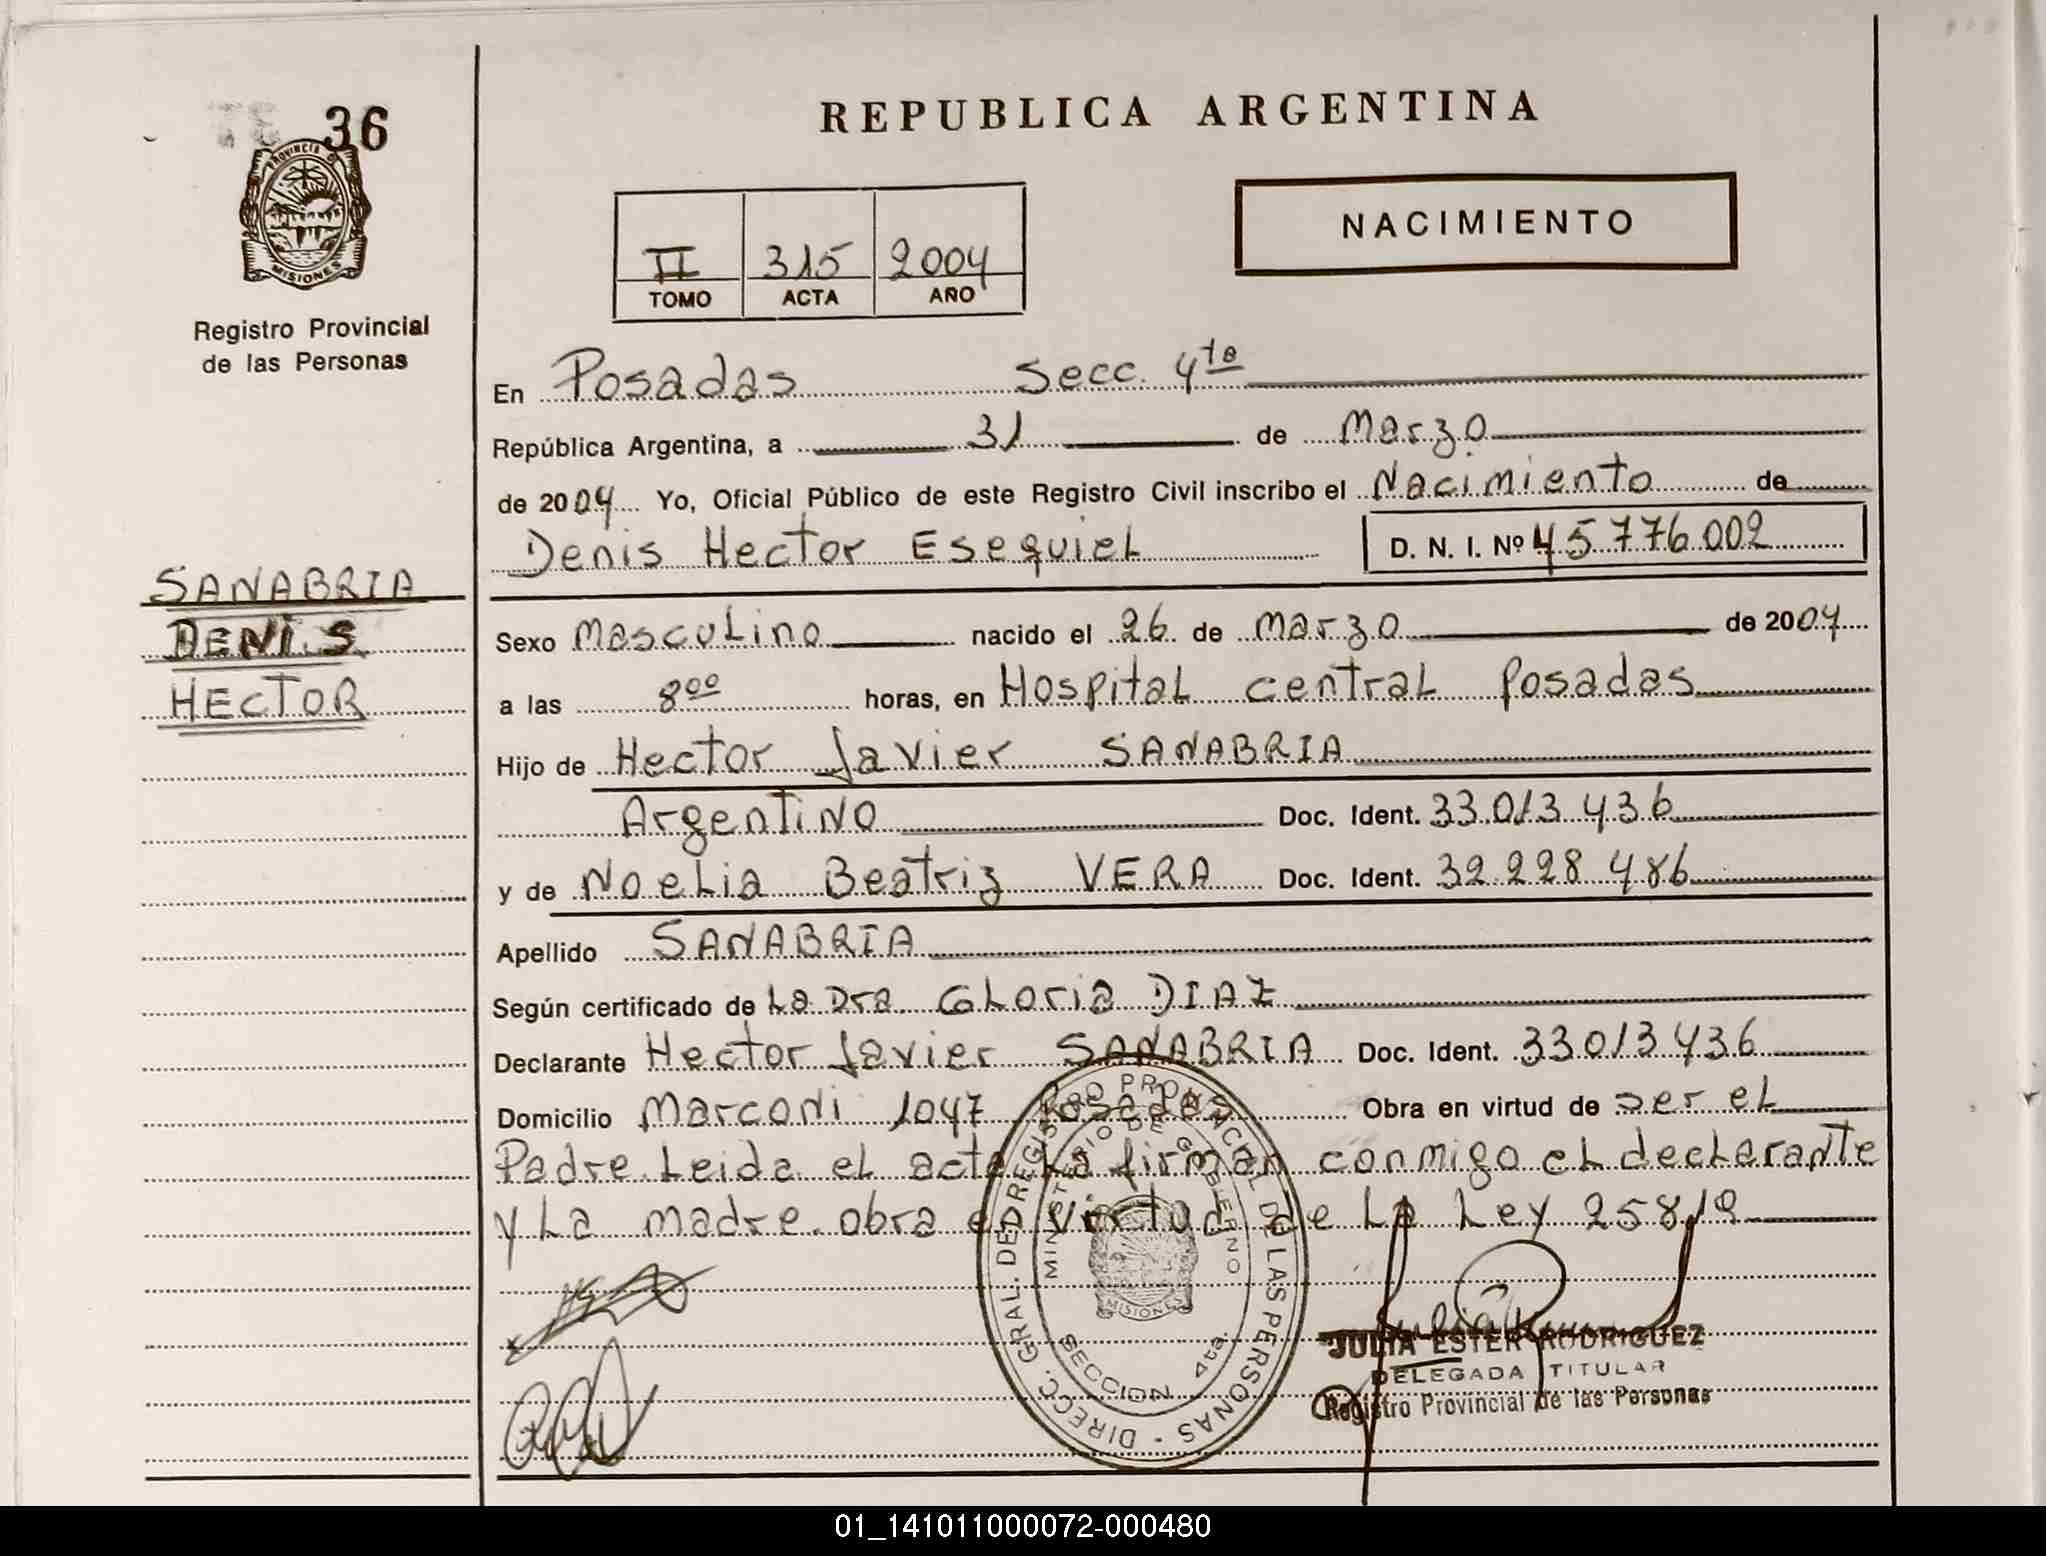 36
PROVINCIA DE
MISIONES
Registro Provincial
de las Personas
SANABRIA
DENIS
HECTOR
REPUBLICA ARGENTINA
NACIMIENTO
II 315 2004
TOMO ACTA AÑO
En Posadas Secc. 4ta
República Argentina, a 31 de Marzo
de 2004 Yo, Oficial Público de este Registro Civil inscribo el Nacimiento de
Denis Hector Esequiel D. N. I. Nº 45776002
Sexo Masculino nacido el 26 de Marzo de 2004
a las 8⁰⁰ horas, en Hospital central Posadas
Hijo de Hector Javier SANABRIA
Argentino Doc. Ident. 33.013.436
y de Noelia Beatriz VERA Doc. Ident. 32.228.486
Apellido SANABRIA
Según certificado de La Dra. Gloria DIAZ
Declarante Hector Javier SANABRIA Doc. Ident. 33013436
Domicilio Marconi 1047 Posadas Obra en virtud de ser el
Padre. Leida el acta la firman conmigo el declarante
y La madre. obra en virtud de La Ley 25819
DIRECC. GRAL. DE REGISTRO PROVINCIAL DE LAS PERSONAS -
MINISTERIO DE GOBIERNO
MISIONES
SECCION 4ta.
JULIA ESTER RODRIGUEZ
DELEGADA TITULAR
Registro Provincial de las Personas
01_141011000072-000480